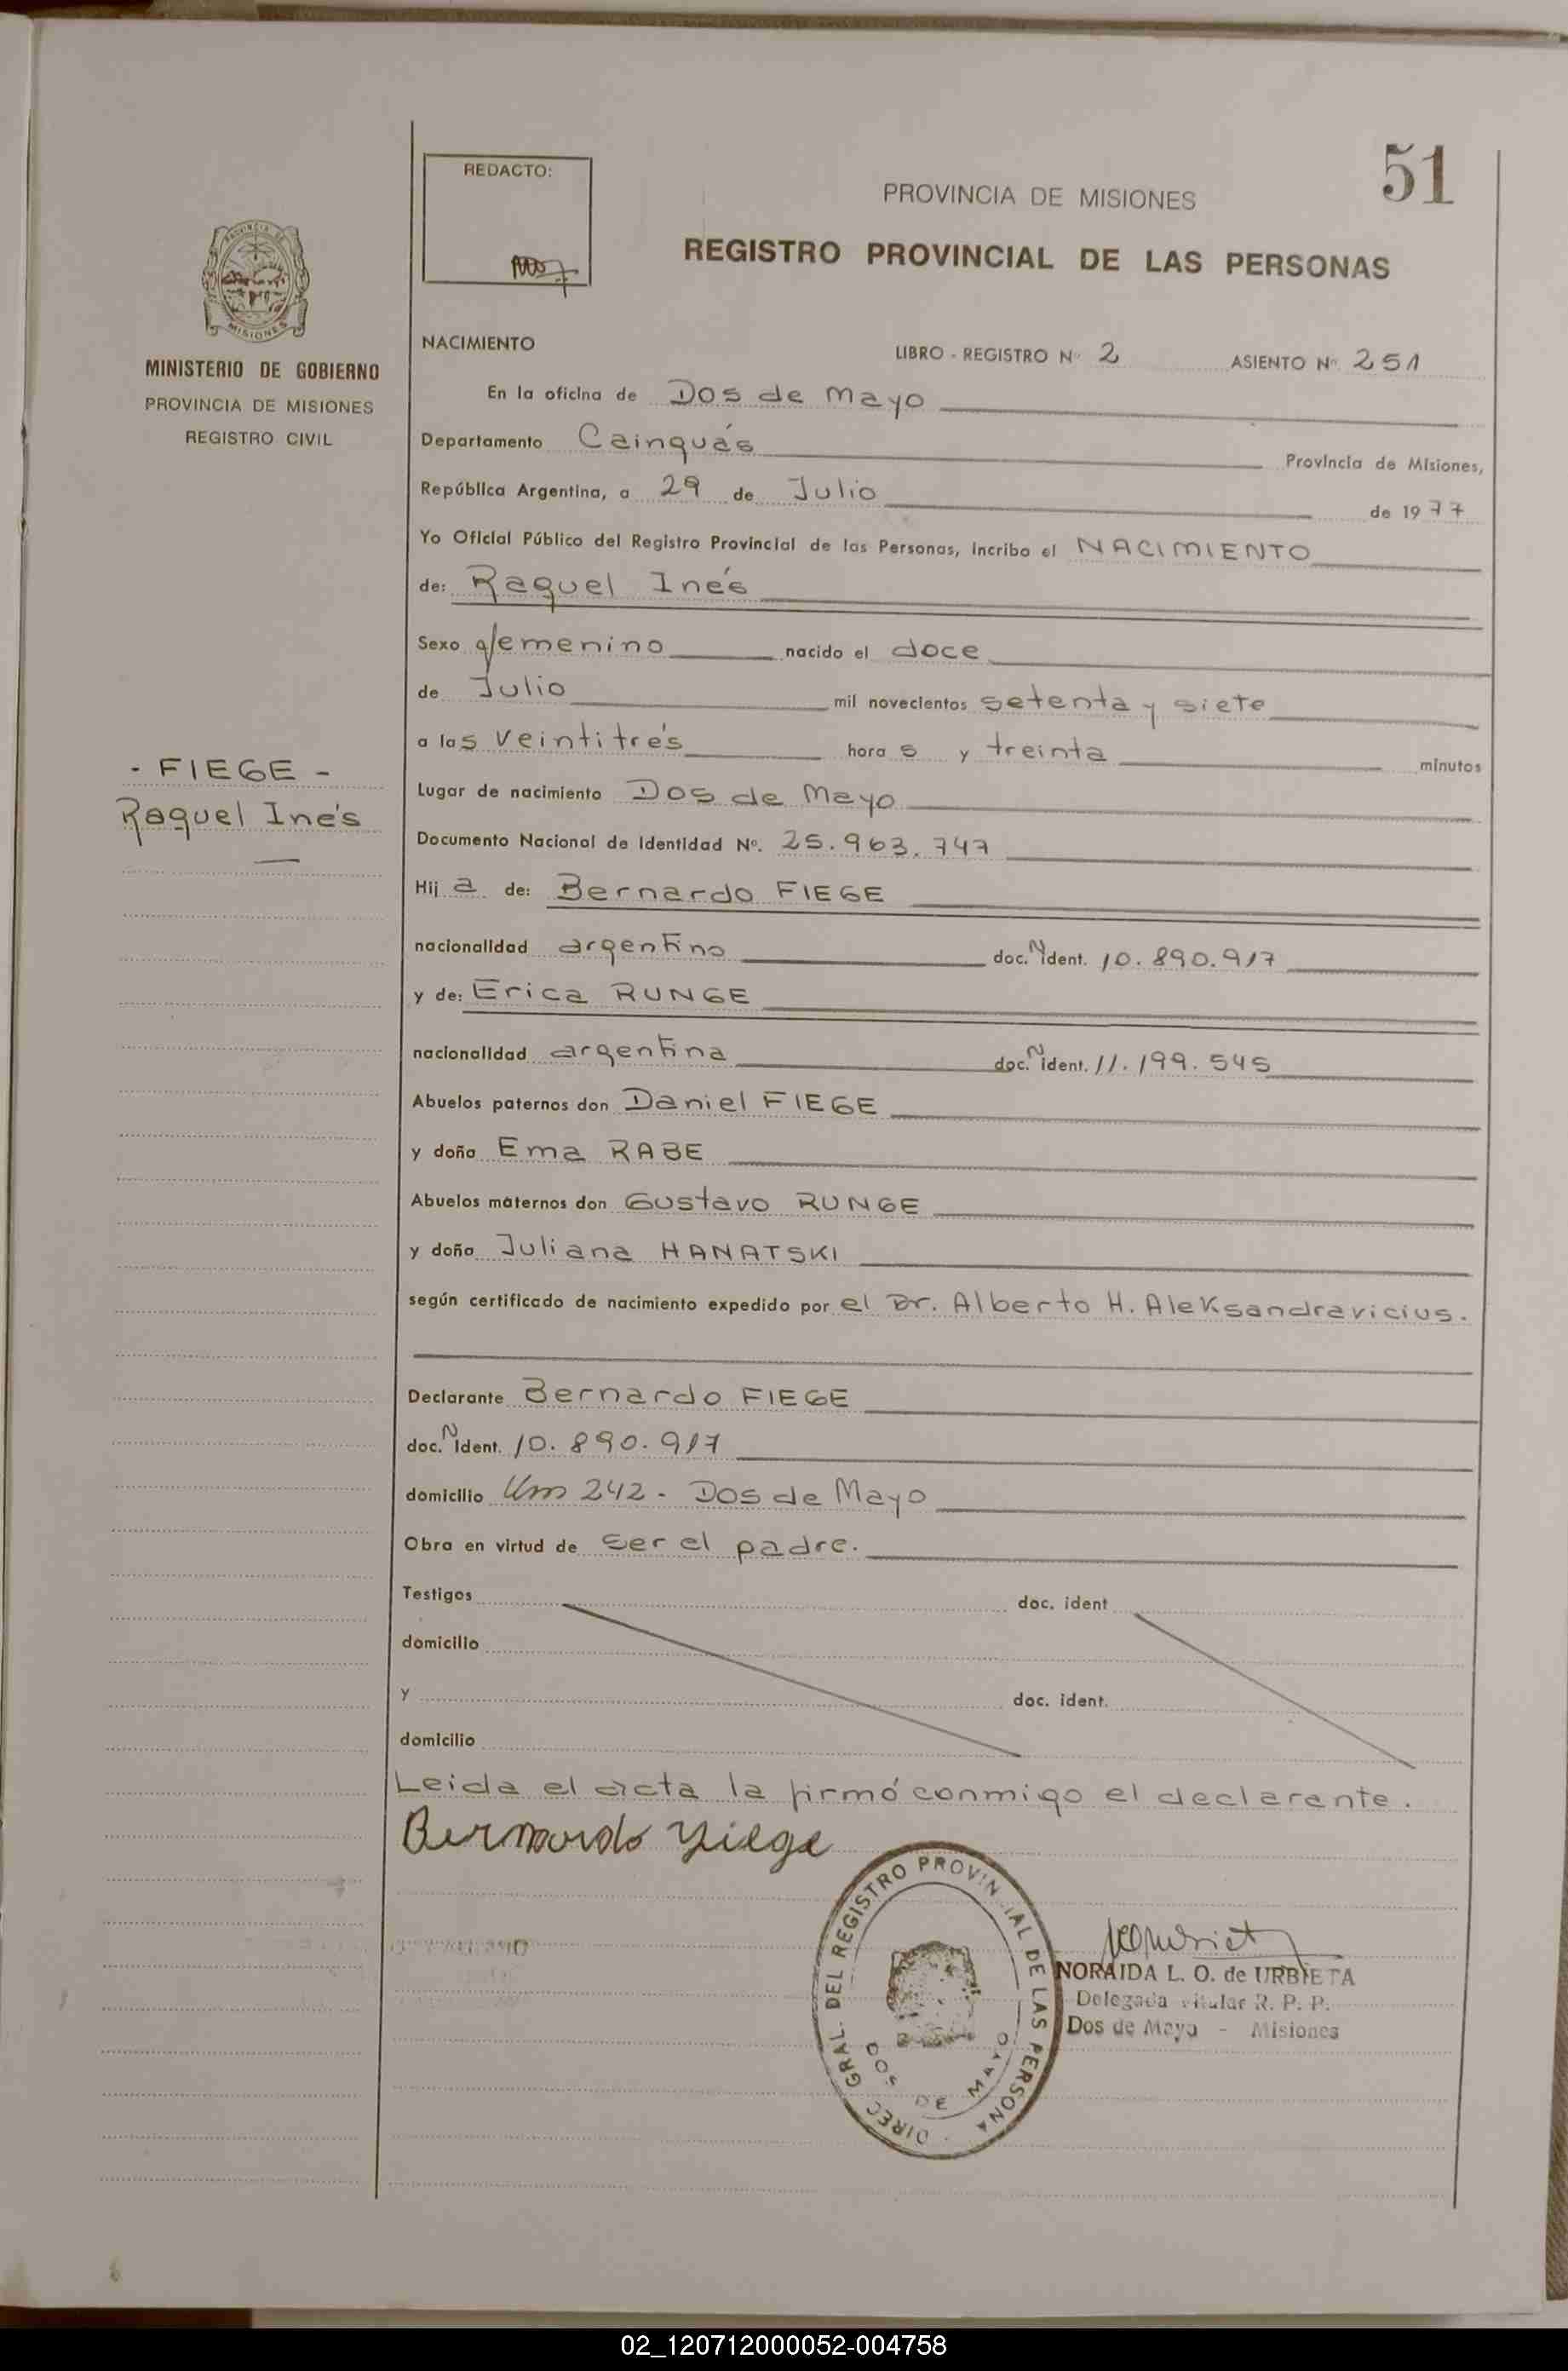 51
REDACTO:
PROVINCIA DE MISIONES
REGISTRO PROVINCIAL DE LAS PERSONAS
PROVINCIA DE
MISIONES
MINISTERIO DE GOBIERNO
PROVINCIA DE MISIONES
REGISTRO CIVIL
- FIEGE -
Raquel Inés
NACIMIENTO LIBRO - REGISTRO Nº 2 ASIENTO Nº 251
En la oficina de Dos de Mayo
Departamento Cainguás Provincia de Misiones,
República Argentina, a 29 de Julio de 1977
Yo Oficial Público del Registro Provincial de las Personas, incribo el NACIMIENTO
de: Raquel Inés
Sexo femenino nacido el doce
de Julio mil novecientos setenta y siete
a las veintitrés hora s y treinta minutos
Lugar de nacimiento Dos de Mayo
Documento Nacional de Identidad Nº. 25.963.747
Hij a de: Bernardo FIEGE
nacionalidad argentino doc. N ident. 10.890.917
y de: Erica RUNGE
nacionalidad argentina doc. N ident. 11.199.545
Abuelos paternos don Daniel FIEGE
y doña Ema RABE
Abuelos maternos don Gustavo RUNGE
y doña Juliana HANATSKI
según certificado de nacimiento expedido por el Dr. Alberto H. Aleksandravicius.
Declarante Bernardo FIEGE
doc. N ident. 10.890.917
domicilio Km 242 - Dos de Mayo
Obra en virtud de ser el padre.
Testigos doc. ident
domicilio
y doc. ident.
domicilio
Leida el acta la firmó conmigo el declarante.
Bernardo Fiege
DIREC. GRAL. DEL REGISTRO PROVINCIAL DE LAS PERSONA
DOS DE MAYO
NORAIDA L. O. de URBIETA
Delegada Titular R. P. P.
Dos de Mayo - Misiones
02_120712000052-004758